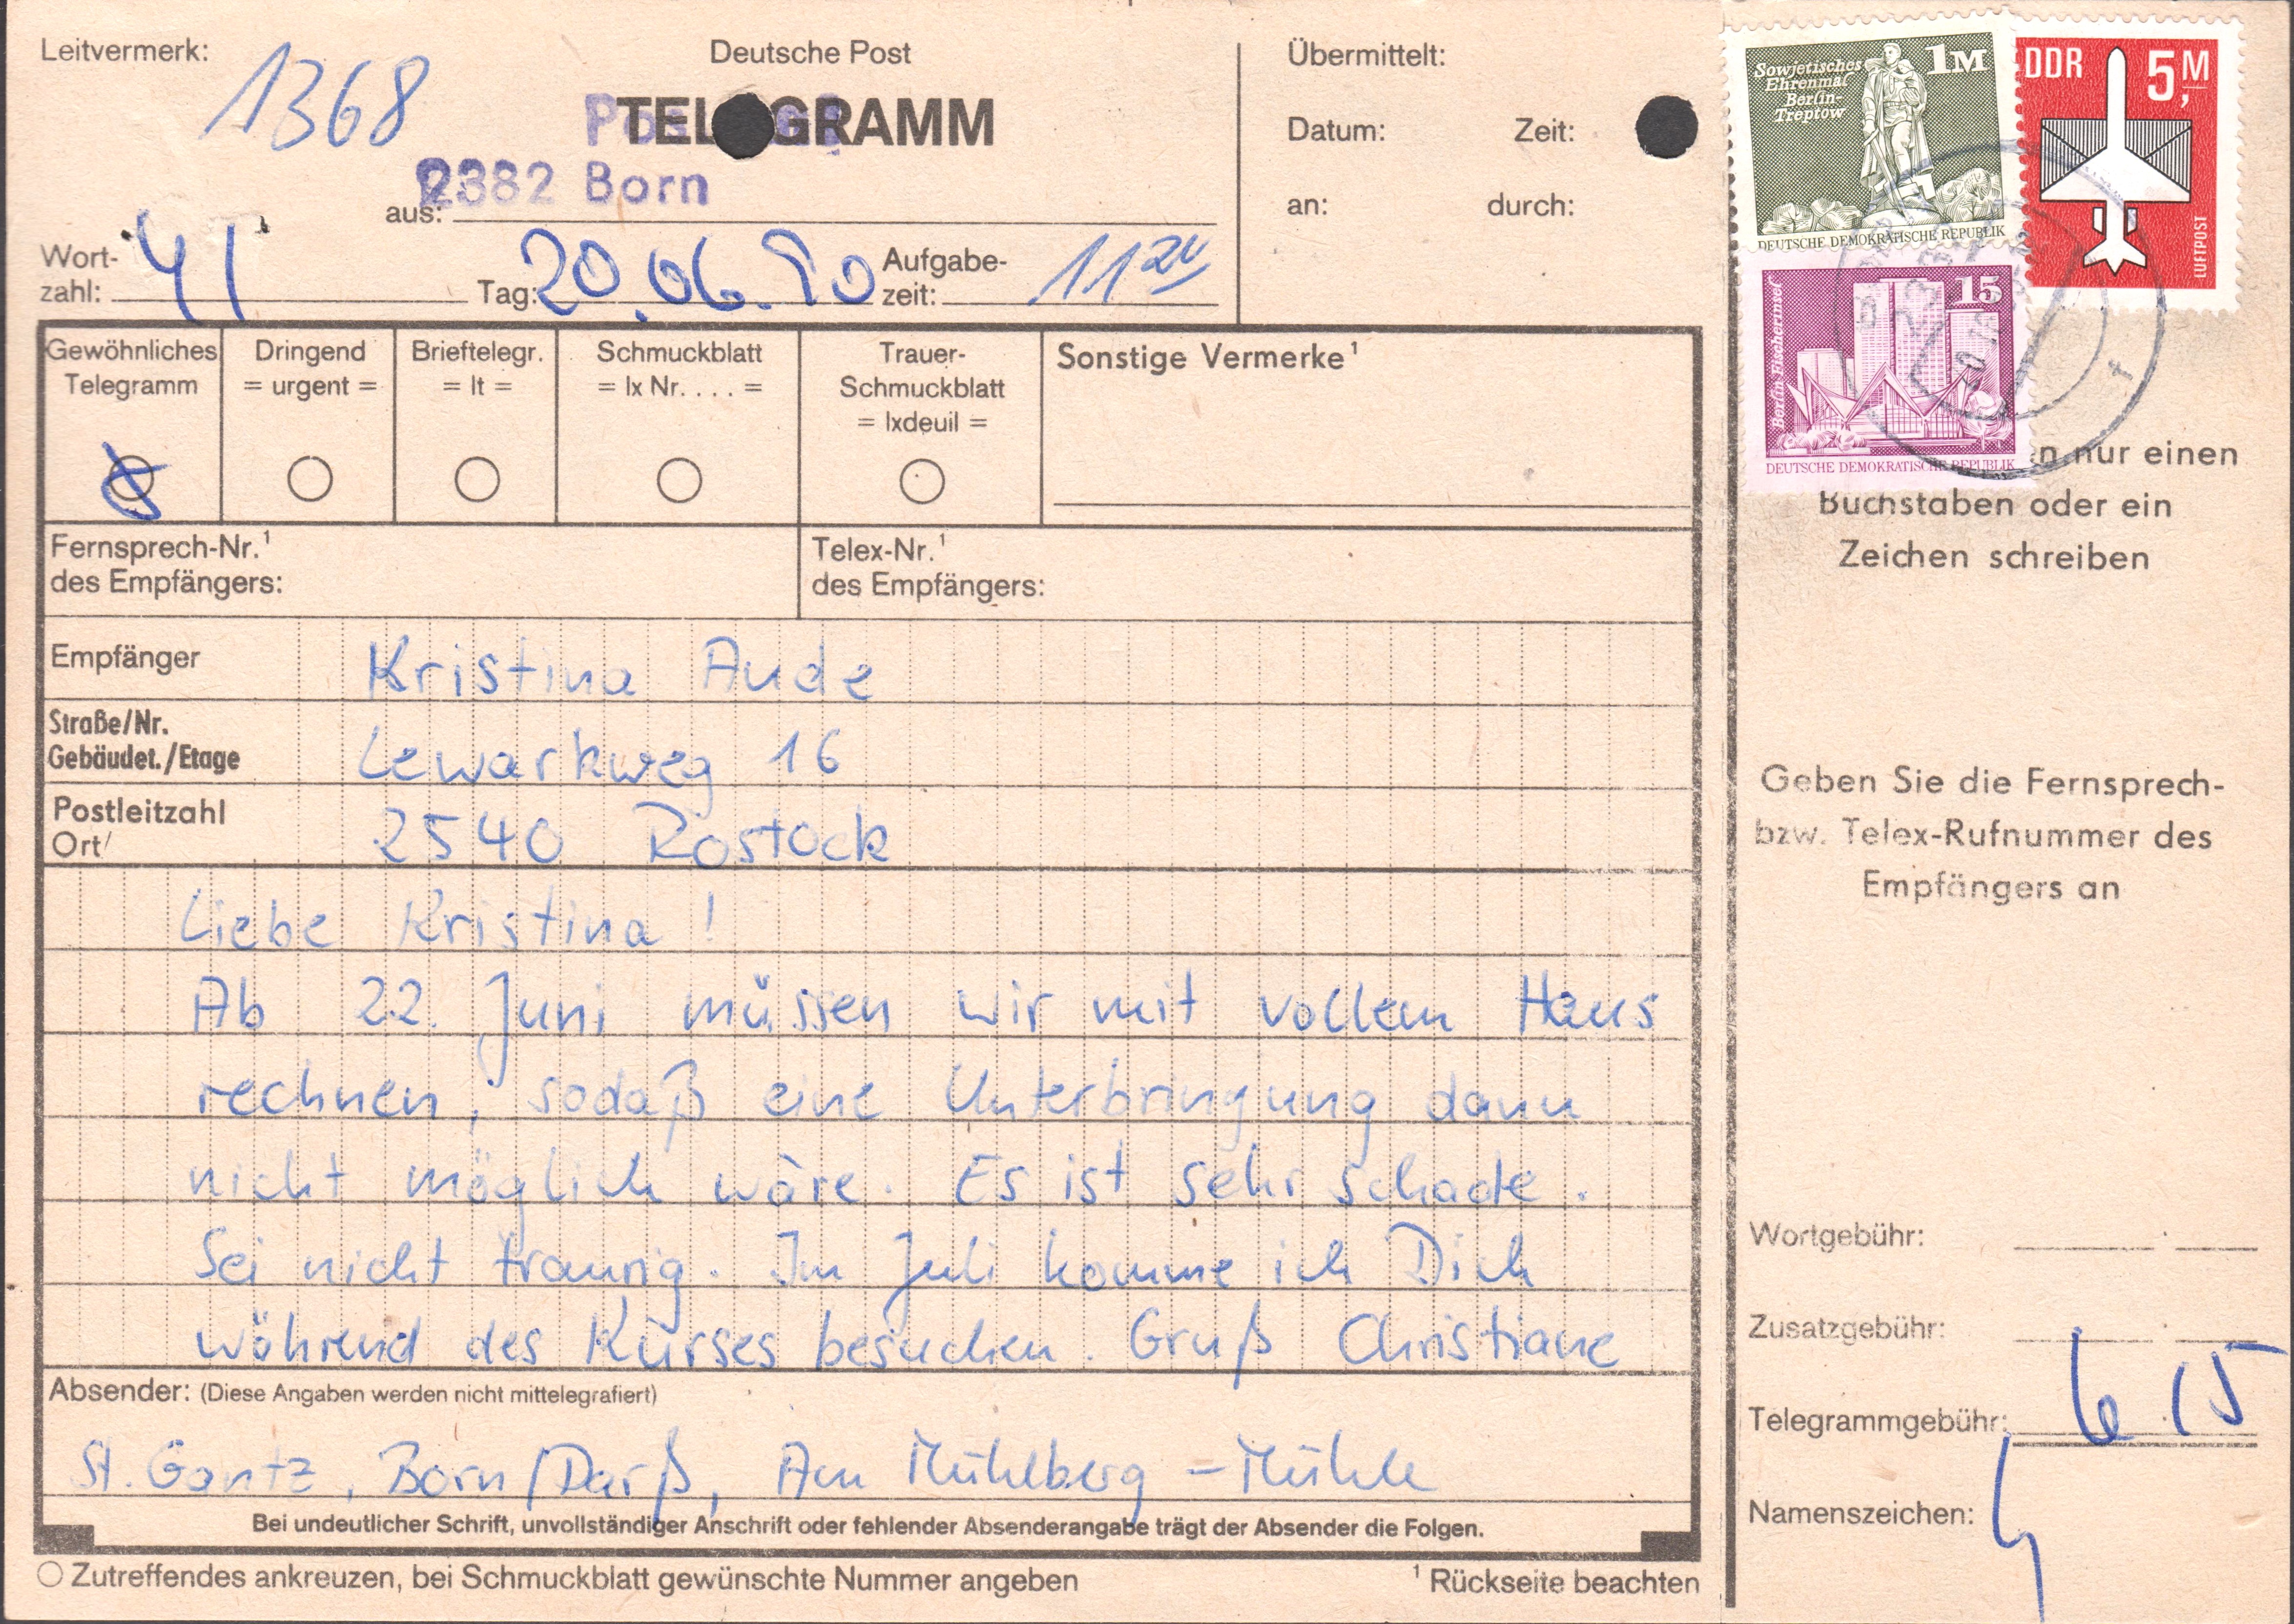 Leitvermerk:
1368
Deutsche Post
TELEGRAMM
2382 Born
aus:
Wort-
zahl: 41
Tag: 20.06.90
Aufgabe-
zeit: 11 20
Übermittelt:
Datum: Zeit:
an: durch:
Sowjetisches
Ehrenmal
Berlin-
Treptow
1M
DEUTSCHE DEMOKRATISCHE REPUBLIK
DDR 5,M
LUFTPOST
Berlin Fischerinsel
15
DEUTSCHE DEMOKRATISCHE REPUBLIK
Gewöhnliches
Telegramm
Dringend
= urgent =
Brieftelegr.
= lt =
Schmuckblatt
= lx Nr. . . . =
Trauer-
Schmuckblatt
= lxdeuil =
Sonstige Vermerke¹
Fernsprech-Nr.¹
des Empfängers:
Telex-Nr.¹
des Empfängers:
Empfänger Kristina Aude
Straße/Nr.
Gebäudet./Etage Lewarkweg 16
Postleitzahl
Ort/ 2540 Rostock
Liebe Kristina !
Ab 22. Juni müssen wir mit vollem Haus
rechnen, sodaß eine Unterbringung dann
nicht möglich wäre. Es ist sehr schade.
Sei nicht traurig. Im Juli komme ich Dich
während des Kurses besuchen. Gruß Christiane
Absender: (Diese Angaben werden nicht mittelegrafiert)
St. Gantz, Born/Darß, Am Mühlberg – Mühle
Bei undeutlicher Schrift, unvollständiger Anschrift oder fehlender Absenderangabe trägt der Absender die Folgen.
Zutreffendes ankreuzen, bei Schmuckblatt gewünschte Nummer angeben
¹ Rückseite beachten
nur einen
Buchstaben oder ein
Zeichen schreiben
Geben Sie die Fernsprech-
bzw. Telex-Rufnummer des
Empfängers an
Wortgebühr:
Zusatzgebühr:
Telegrammgebühr: 6 15
Namenszeichen: